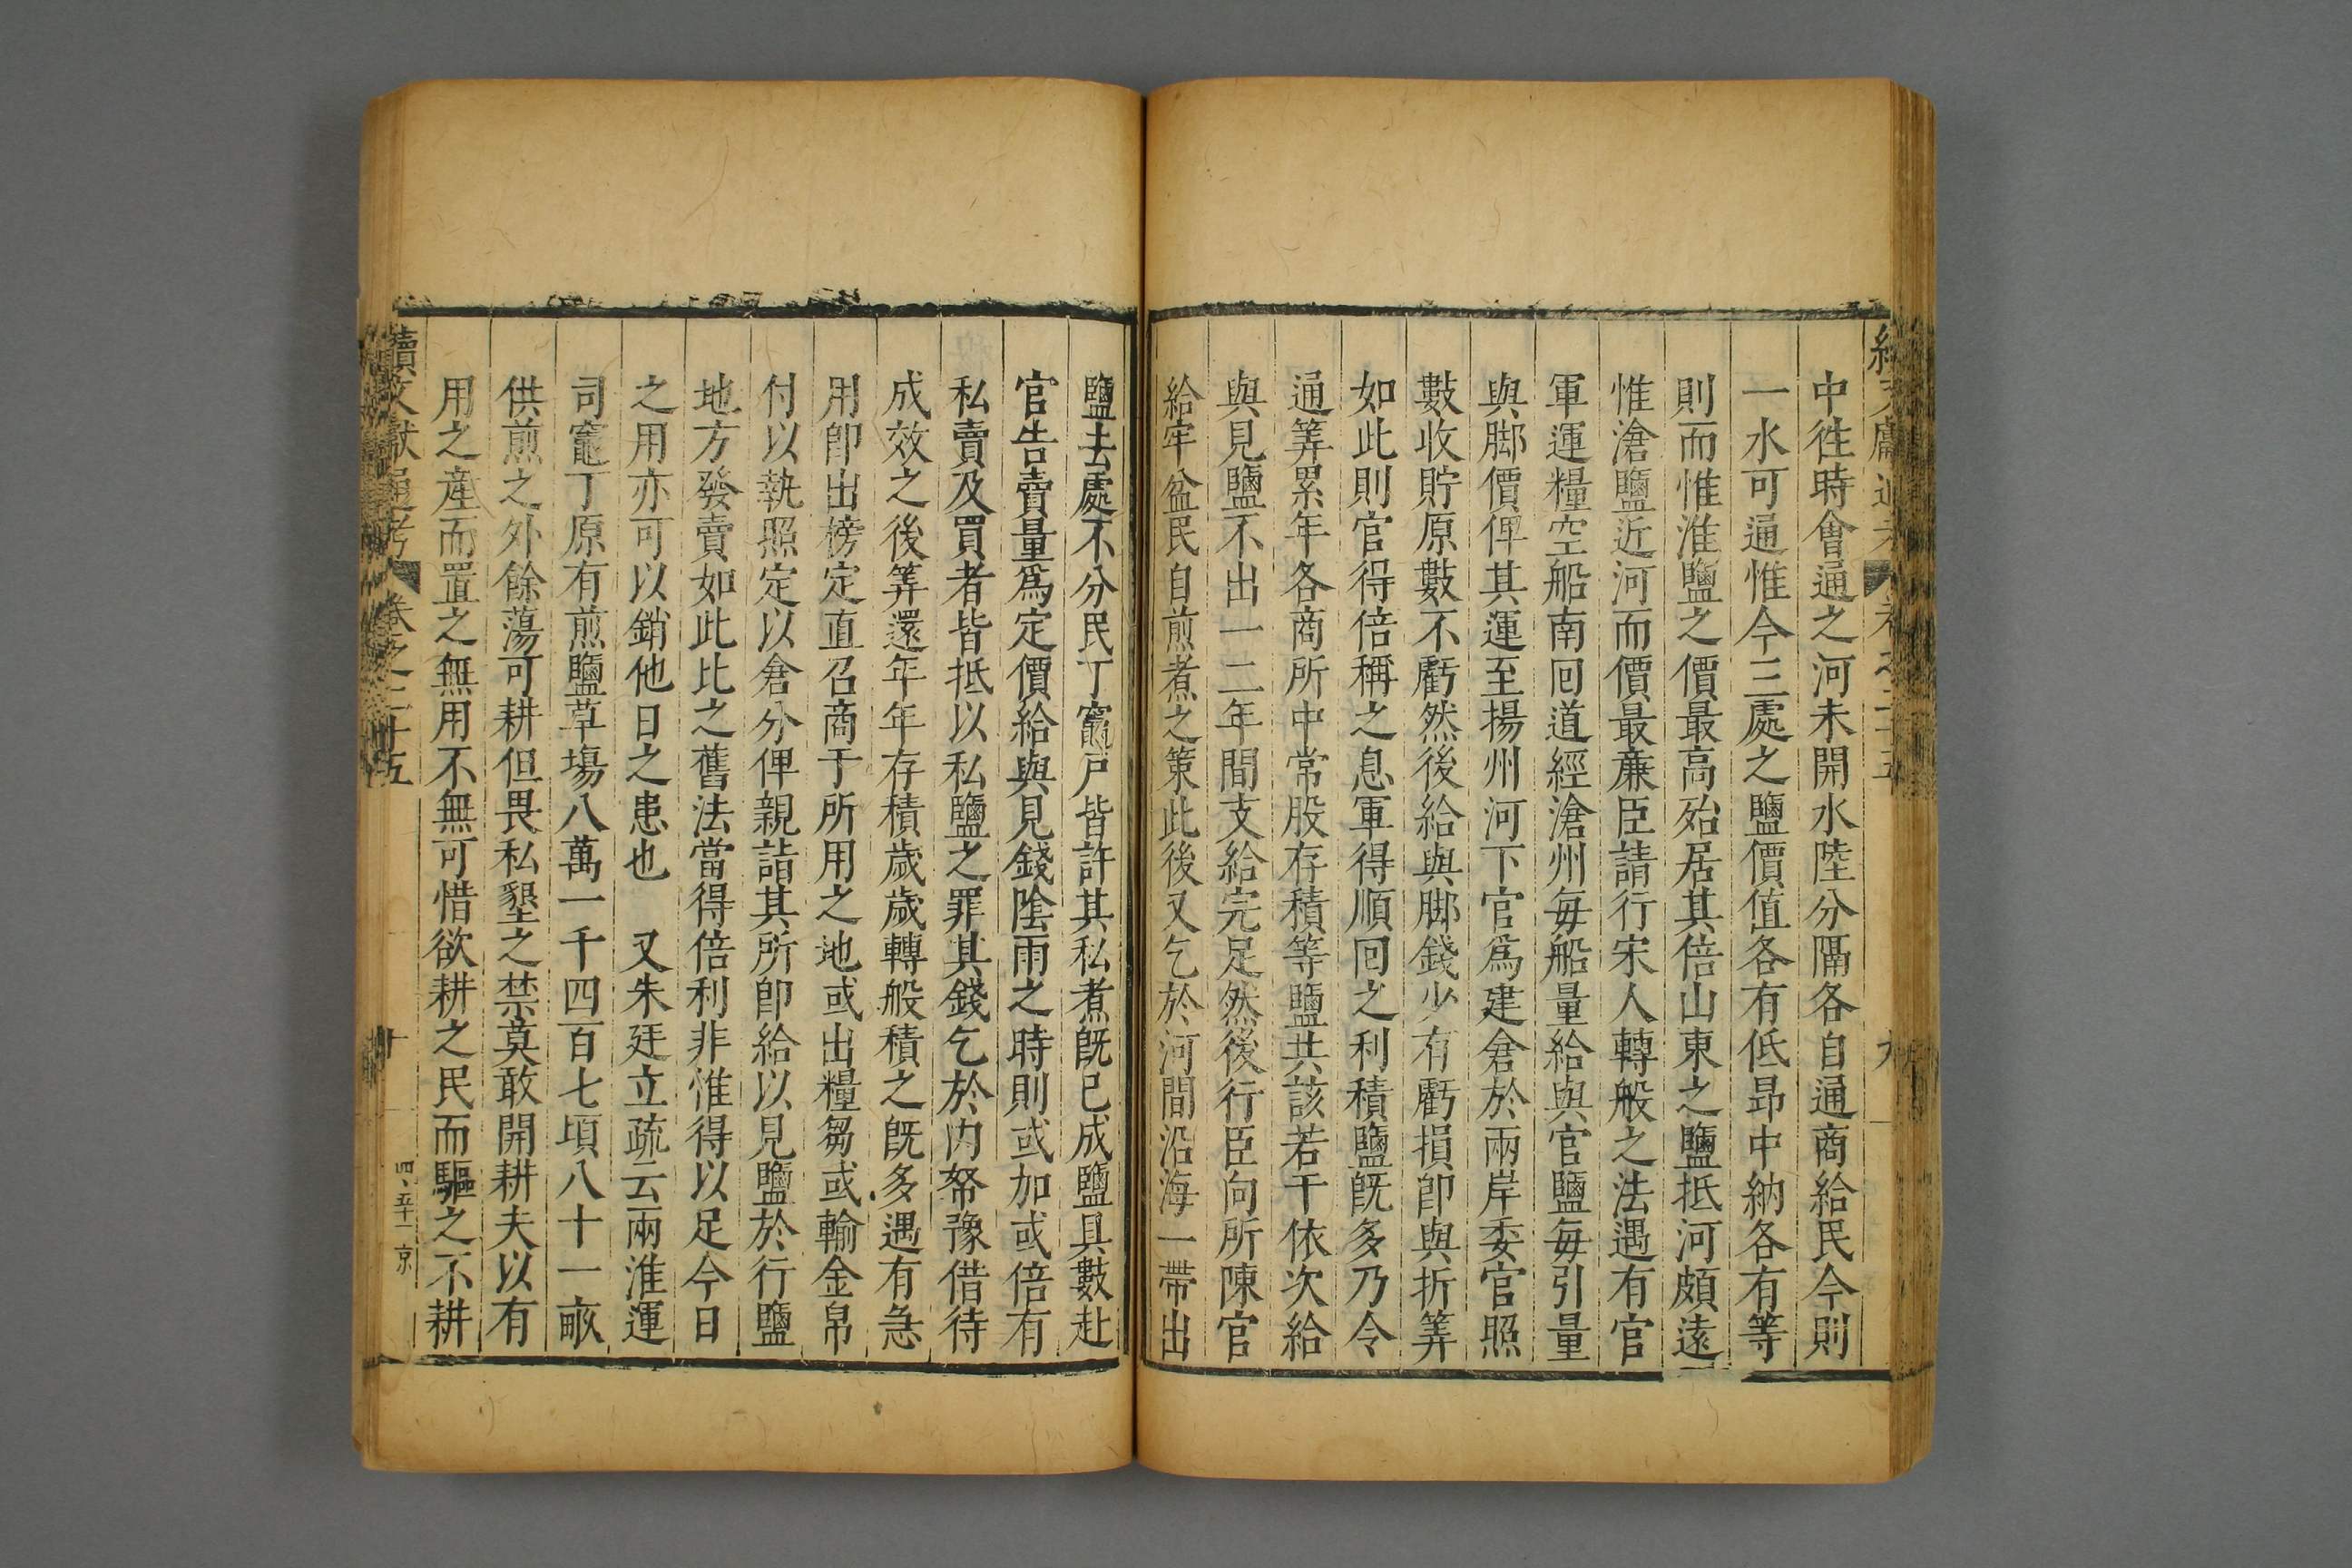 中徃時會通之河未開水陸分隔各自通商給民今則
一水可通惟今三處之鹽價值各有低昻中納各有等
則而惟淮鹽之價最高殆居其倍山東之鹽抵河頗遠
惟滄鹽近河而價最亷臣請行宋人轉般之法遇有官
軍運糧空船南囘道經滄州每船量給與官鹽每引量
與脚價俾其運至揚州河下官爲建倉於兩岸委官照
數收貯原數不虧然後給與脚錢少有虧損卽與折筭
如此則官得倍稱之息軍得順回之利積鹽旣多乃令
通筭累年各商所中常股存積等鹽共該若干依次給
與見鹽不出一二年間支給完足然後行臣向所陳官
給牢盆民自煎煮之策此後又乞於河間沿海一帶出
鹽去處不分民丁竈戶皆許其私煮旣已成鹽具數赴
官告賣量爲定價給與見錢陰雨之時則或加或倍有
私賣及買者皆抵以私鹽之罪其錢乞於內帑豫借待
成效之後筭還年年存積歲歲轉般積之旣多遇有急
用卽出榜定直召商于所用之地或出糧芻或輸金帛
付以執照定以倉分俾親詣其所卽給以見鹽於行鹽
地方發賣如此比之舊法當得倍利非惟得以足今日
之用亦可以銷他日之患也　又朱廷立疏云兩淮運
司竈丁原有煎鹽草塲八萬一千四百七頃八十一畝
供煎之外餘蕩可耕但畏私墾之禁莫敢開耕夫以有
用之產而置之無用不無可惜欲耕之民而驅之不耕
續文獻通考　卷之二十五　十　四、五十二　京